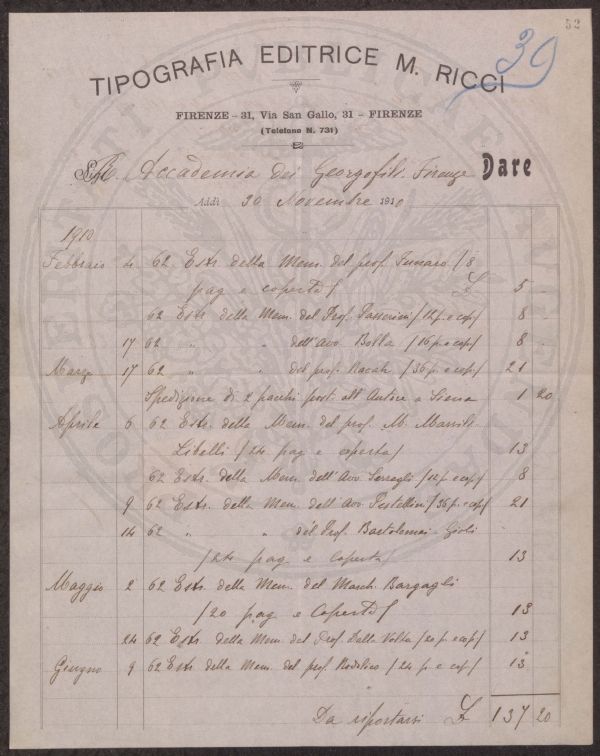 52
39
TIPOGRAFIA EDITRICE M. RICCI
FIRENZE – 31, Via San Gallo, 31 – FIRENZE
(Telefono N. 731)
R. Accademia dei Georgofili Firenze Dare
Addì 30 Novembre 1910
1910
Febbraio 4 62 Estr. della Mem. del prof. Fumaro / 8
pag e coperta / £ 5 -
62 Estr. della Mem. del Prof. Passerini / 12 p. e cop / 8 -
17 62 " " dell'Avv. Bolla / 16 p e cop / 8 -
Marzo 17 62 " " del prof. Racah / 36 p. e cop / 21
Spedizione di 2 pacchi post. all'Autore a Siena 1 20
Aprile 6 62 Estr. della Mem. del prof. M. Marsili
Libelli / 24 pag e coperta / 13
62 Estr. della Mem. dell'Avv. Serragli / 12 p. e cop / 8
9 62 Estr. della Mem. dell'Avv. Pestellini / 36 p. e cop / 21
14 62 " " del Prof. Bartolomei Gioli
/ 24 pag e coperta / 13
Maggio 2 62 Estr. della Mem. del March. Bargagli
/ 20 pag e Coperta / 13
24 62 Estr. della Mem. del Prof Dalla Volta / 20 p. e cop / 13
Giugno 9 62 Estr. della Mem. del prof. Rodolico / 24 p. e cop / 13
Da riportarsi £ 137 20